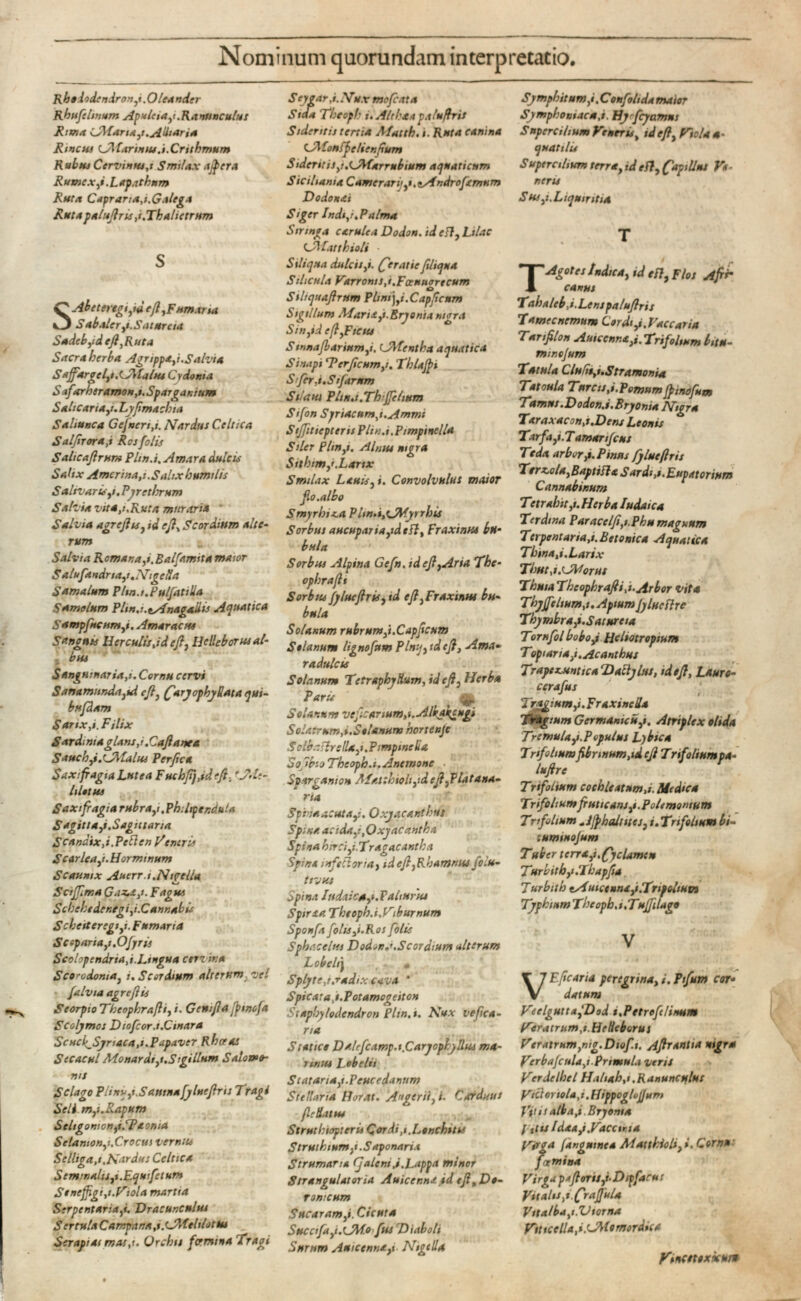 Nominum quorundam interpretatio.
Rhododendron,i.Oleander
Rhuselinum Apuleia,i.Ranunculus
Rima Maria,i.Alliaria
Rincus Marinus.i.Crithmum
Rubus Cervinus,i Smilax aspera
Rumex,i.Lapathum
Ruta Capraria,i.Galega
Ruta palustris,i.Thalietrum
S
SAbeteregi,id est,Fumaria
Sabaler,i.Satureia
Sadeb,id est,Ruta
Sacra herba Agrippæ,i.Salvia
Saffargel,i.Malus Cydonia
Safarheramon,i.Sparganium
Salicaria,i.Lysimachia
Saliunca Gesneri,i. Nardus Celtica
Salsirora,i Ros solis
Salicastrum Plin.i.Amara dulcis
Salix Amerina,i.Salix humilis
Salivaris,i.Pyrethrum
Salvia vitæ,i.Ruta muraria
Salvia agrestis, id est, Scordium alte-
rum
Salvia Romana,i.Balsamita maior
Salusandria,i.Nigella
Samalum Plin.i.Pulsatilla
Samolum Plin.i.Anagallis Aquatica
Sampsucum,i.Amaracus
Sanguis Herculis,id est, Helleborus al-
bus
Sanguinaria,i. Cornu cervi
Sanamunda,id est, Caryophyllata qui-
busdam
Sarix,i.Filix
Sardinia glans,i.Castanea
Sauch,i.Malus Persica
Saxifragia Lutea Fuchsij,id est, Me-
lilotus
Saxifragia rubra,i.Philipendula
Sagitta,i.Sagittaria
Scandix,i.Pecten Veneris
Scarlea,i.Horminum
Scaunix Auerr.i.Nigella
Scissima Gazæ,i. Fagus
Schehedenegi,i.Cannabis
Scheiteregi,i.Fumaria
Scoparia,i.Osyris
Scolopendria,i.Lingua cervina
Scorodonia, i. Scordium alterum, vel
salvia agrestis
Scorpio Theophrasti, i. Genista spinosa
Scolymos Dioscor.i.Cinara
Scuck Syriaca,i.Papaver Rhœas
Secacul Monardi,i.Sigillum Salomo-
nis
Sclago Plinij,i.Sauina sylvestris Tragi
Seli m,i.Rapum
Seligonion,i.Pæonia
Selanion,i.Crocus vernus
Selliga,i.Nardus Celtica
Seminalis,i.Equisetum
Seneffigi,i.Viola martia
Serpentaria,i. Dracunculus
Sertula Campana,i.Melilotus
Serapias mas,i. Orchis fœmina Tragi
Seygar,i.Nux moscata
Sida Theoph i. Althæa palustris
Sideritis tertia Matth. i. Ruta canina
Monspeliensium
Sideritis,i.Marrubium aquaticum
Siciliania Camerarij,i.Androsæmum
Dodonæi
Siger Indi,i.Palma
Siringa cærulea Dodon. id est, Lilac
Matthioli
Siliqua dulcis,i. Ceratie siliqua
Silicula Varronis,i.Fœnugrecum
Siliquastrum Plinij,i.Capsicum
Sigillum Mariæ,i.Bryonia nigra
Sin,id est,Ficus
Sinnasbarium,i. Mentha aquatica
Sinapi Persicum,i. Thlaspi
Sifer,i.Sisarum
Silaus Plin.i.Thysselium
Sison Syriacum,i.Ammi
Sissitiepteris Plin.i.Pimpinella
Siler Plin,i. Alnus nigra
Sithim,i.Larix
Smilax Lævis, i. Convolvulus maior
flo.albo
Smyrhiza Plin.i.Myrrhis
Sorbus aucuparia,id est, Fraxinus bu-
bula
Sorbus Alpina Gesn. id est,Aria The-
ophrasti
Sorbus sylvestris, id est, Fraxinus bu-
bula
Solanum rubrum,i.Capsicum
Solanum lignosum Plnij, id est, Ama-
radulcis
Solanum Tetraphyllum, id est, Herba
Paris
Solanum vesicarium,i.Alkakengi
Solatrum,i.Solanum hortense
Solbastrella,i.Pimpinella
Theoph.i.Anemone
Sparganion Matthioli,id est,Platana-
ria
Spina acuta,i. Oxyacanthus
Spina acida,i,Oxyacantha
Spina hirci,i.Tragacantha
Spina infectoria, id est,Rhamnus solu-
tivus
Spina Iudaica,i.Paliurus
Spiræa Theoph.i.Viburnum
Sponsa solis,i.Ros solis
Sphacelus Dodon.i.Scordium alterum
Lobelij
Splyte,i.radix cava
Spicata,i.Potamogeiton
Staphylodendron Plin.i. Nux vesica-
ria
Statice Dalescamp.i.Caryophyllus ma-
rinus Lobelii
Stataria,i.Peucedanum
Stellaria Horat. Augerii, i. Carduus
stellatus
Struthiopteris Cordi,i.Lonchitis
Struthium,i.Saponaria
Strumaria Galeni,i.Lappa minor
Strangulatoria Auicennæ id est, Do-
ronicum
Sucaram,i. Cicuta
Succisa,i.Morsus Diaboli
Surum Auicennæ,i. Nigella
Symphitum,i.Consolida maior
Symphoniaca,i. Hyoscyamus
Supercilium Veneris, id est, Viola a-
quatilis
Supercilium terræ, id est, Capillus Ve-
neris
Sus,i.Liquiritia
T
TAgotes Indica, id est, Flos Afri-
canus
Tahaleb,i.Lens palustris
Tamecnemum Cordi,i.Vaccaria
Tarifilon Auicennæ,i.Trifolium bitu-
minosum
Tatula Clusii,i.Stramonia
Tatoula Turcis,i.Pomum spinosum
Tamus.Dodon.i.Bryonia Nigra
Taraxacon,i.Dens Leonis
Tarfa,i.Tamariscus
Teda arbor,i.Pinus sylvestris
Terzola,Baptista Sardi,i.Eupatorium
Cannabinum
Tetrahit,i.Herba Iudaica
Terdina Paracelsi,i.Phu magnum
Terpentaria,i.Betonica Aquatica
Thina,i.Larix
Thut,i.Morus
Thuia Theophrasti,i.Arbor vitæ
Thysselium,i. Apium sylvestre
Thymbra,i.Satureia
Tornsol bobo,i Heliotropium
Topiaria,i.Acanthus
Trapezuntica Dactylus, id est, Lauro-
cerasus
Tragium,i.Fraxinella
Tragium Germanicū,i. Atriplex olida
Tremula,i.Populus Lybica
Trifolium fibrinum,id est Trifolium pa-
lustre
Trifolium cochleatum,i.Medica
Trifolium fruticans,i.Polemonium
Trifolium Asphaltites, i.Trifolium bi-
tuminosum
Tuber terræ,i.Cyclamen
Turbith,i.Thapsia
Turbith Auicennæ,i.Tripolium
Typhium Theoph.i.Tussilago
V
VEsicaria peregrina, i. Pisum cor-
datum
Veelgutta,Dod i.Petroselinum
Veratrum,i.Helleborus
Veratrum,nig.Dios.i. Astrantia nigra
Verbascula,i.Primula veris
Verdelhel Haliab,i.Ranunculus
Victoriola,i.Hippoglossum
Vitis alba,i.Bryonia
Vitis Idæa,i.Vaccinia
Virga sanguinea Matthioli, i. Cornus
fœmina
Virga pastoris,i.Dipsacus
Vitalis,i.Crassula
Vitalba,i.Viorna
Viticella,i.Momordica
Vincetoxicum